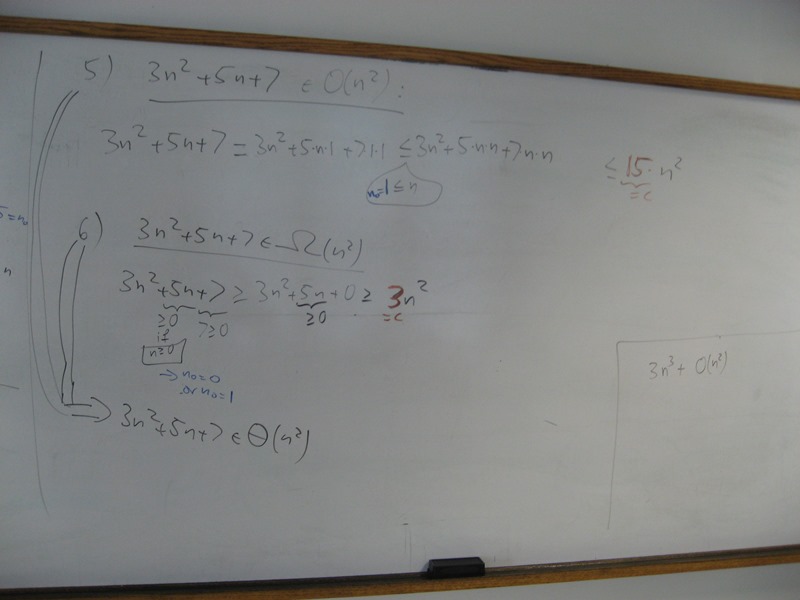 5) 3n²+5n+7 ∈ O(n²):
3n²+5n+7 = 3n²+5·n·1+7·1·1 ≤ 3n²+5·n·n+7·n·n ≤ 15·n²
=c
n₀=1≤n
5=n₀
n
6) 3n²+5n+7 ∈ Ω(n²)
3n²+5n+7 ≥ 3n²+5n+0 ≥ 3n²
≥0 7≥0 ≥0 =c
if
n≥0
→ n₀=0
or n₀=1
⇒ 3n²+5n+7 ∈ Θ(n²)
3n³+ O(n²)